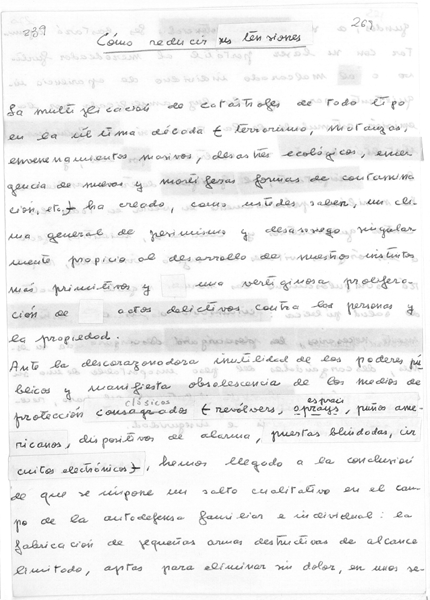 239
269
Cómo reducir sus tensiones
La multiplicación de catástrofes de todo tipo
en la última década (terrorismo, matanzas,
envenenamientos masivos, desastres ecológicos, emer
gencia de nuevas y mortíferas formas de contamina
ción, etc.) ha creado, como ustedes saben, un cli
ma general de pesimismo y desasosiego singular
mente propicio al desarrollo de nuestros instintos
más primitivos y una vertiginosa prolifera
ción de actos delictivos contra las personas y
la propiedad.
Ante la descorazonadora inutilidad de los poderes pú
blicos y manifiesta obsolescencia de los medios de
clásicos
protección consagrados (revólvers, sprays, puños ame
ricanos, dispositivos de alarma, puertas blindadas, cir
cuitos electrónicos), hemos llegado a la conclusión
de que se impone un salto cualitativo en el cam
po de la autodefensa familiar e individual: la
fabricación de pequeñas armas destructivas de alcance
limitado, aptas para eliminar sin dolor, en unos se-